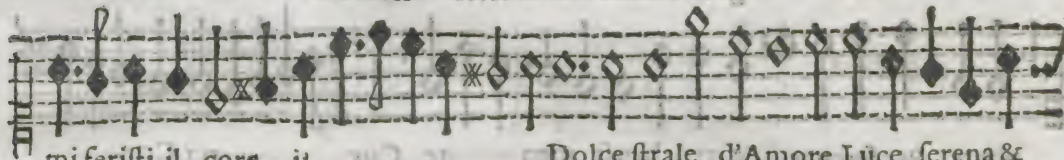 mi feriſti il core ij Dolce ſtrale d'Amore Luce ſerena &